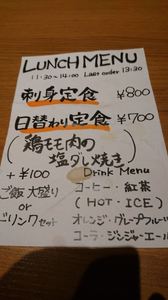 LUNCH MENU
11:30~14:00 Last order 13:30
刺身定食 ¥800
日替わり定食 ¥700
(鶏モモ肉の
塩ダレ焼き)
+¥100
ご飯大盛り
or
ドリンクセット
Drink Menu
コーヒー・紅茶
(HOT・ICE)
オレンジ・グレープフルーツ
コーラ・ジンジャーエール